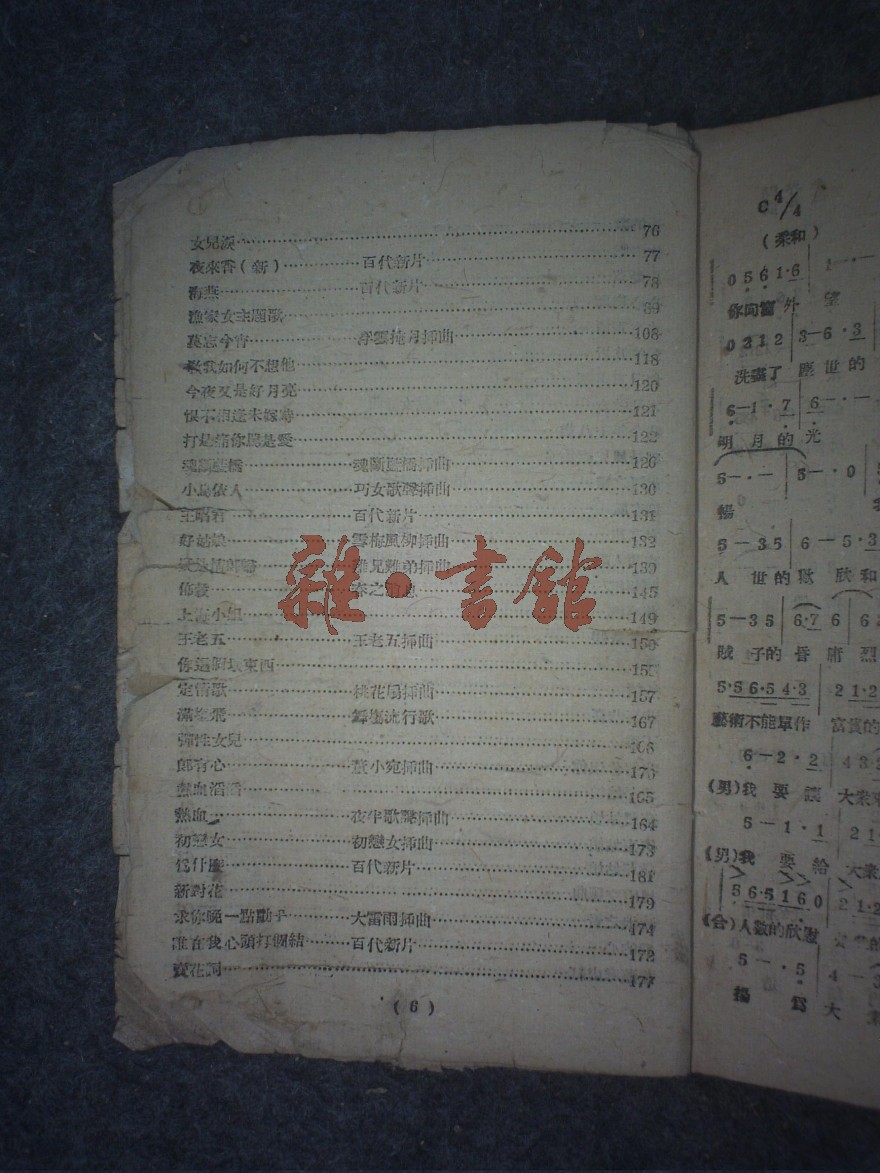 女兒淚 76
夜來香（新） 百代新片 77
海燕 百代新片 78
漁家女主題歌
莫忘今宵 浮雲掩月揷曲 108
敎我如何不想他 118
今夜又是好月亮 120
恨不相逢未嫁時 121
打是痛你罵是愛 122
魂斷藍橋 魂斷藍橋揷曲 126
小鳥依人 巧女歌聲揷曲 130
王昭君 百代新片 131
好姑娘 雪梅風柳揷曲 132
難兄難弟揷曲 139
145
上海小姐 149
王老五 王老五揷曲 150
你這個壞東西
定情歌 桃花扇揷曲 157
滿場飛 舞場流行歌 167
彈性女兒
郎有心 董小宛揷曲
熱血滔滔
熱血 夜半歌聲揷曲 164
初戀女 初戀女揷曲 173
爲什麼 百代新片 181
新對花 179
求你晚一點動手 大雷雨揷曲 174
誰在我心頭打個結 百代新片 172
賣花詞 177
(6)
雜·書館
C 4/4
（柔和）
0 5 6 1·6
你向窗外 望
0 3 1 2 3— 6·3
洗淨了 塵世的
6—1·7 6—·—
明月的光
5—·— 5—·0
暢
5—3 5 6—5·3
人 世的歡欣和
5—3 5 6·7 6
賊 子的昏庸 烈
5·5 6·5 4·3 2 1·2
藝術不能單作 富貴的
6—2·2
(男)我 要 讓 大衆
5—1·1
(男)我 要 給 大衆
5 6·5 1 6 0 2 1·2
(合)人數的欣慰
5—·5 4—·3
揚 爲 大